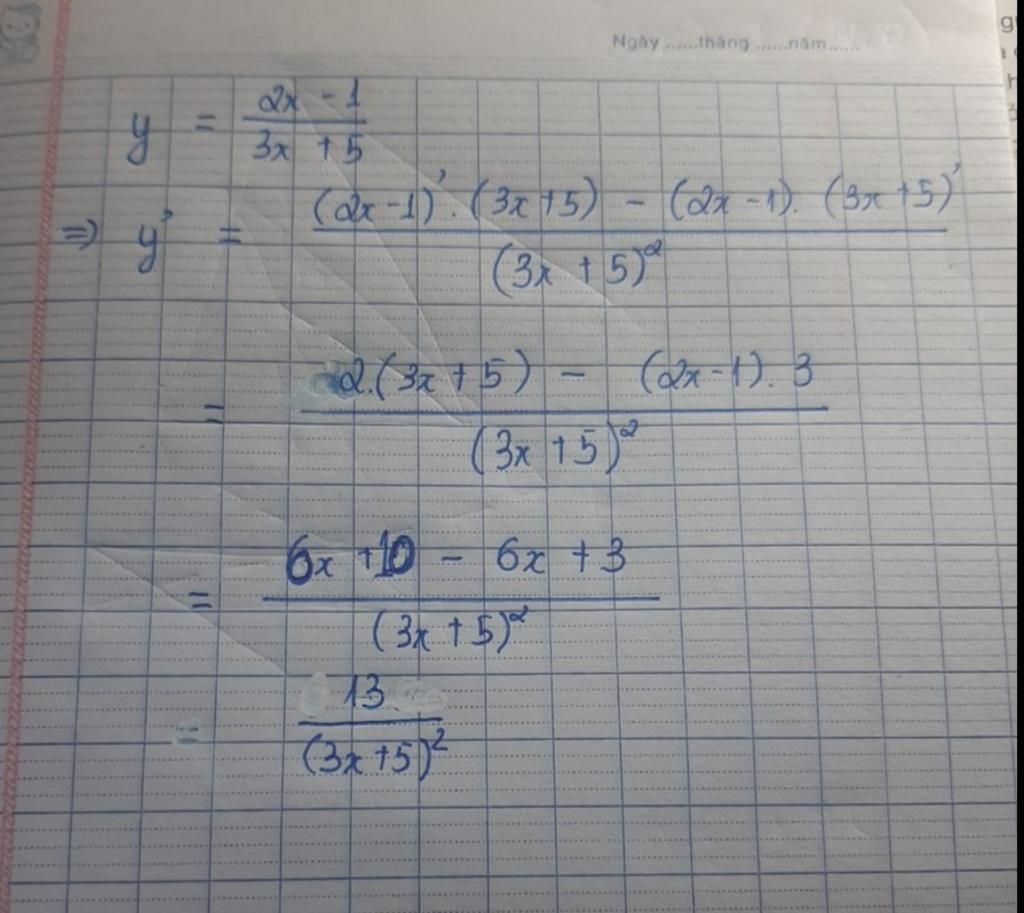 Ngày ......tháng ......năm......
y = (2x - 1)/(3x + 5)
⇒ y' = ((2x-1)'.(3x+5) - (2x-1).(3x+5)')/(3x + 5)²
= (2.(3x+5) - (2x-1).3)/(3x+5)²
= (6x +10 - 6x +3)/(3x+5)²
= 13/(3x+5)²